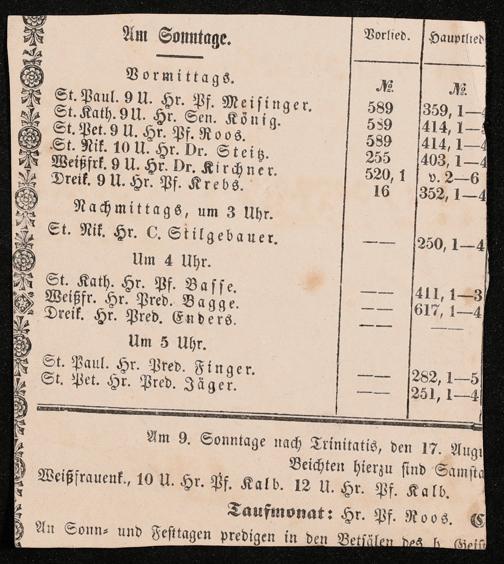 Am Sonntage. Vorlied. Hauptlied
Vormittags. №. №.
St. Paul. 9 U. Hr. Pf. Meisinger. 589 359, 1—4
St. Kath. 9 U. Hr. Sen. König. 589 414, 1—
St. Pet. 9 U. Hr. Pf. Roos. 589 414, 1—4
St. Nik. 10 U. Hr. Dr. Steitz. 255 403, 1—4
Weißfrk. 9 U. Hr. Dr. Kirchner. 520, 1 v. 2—6
Dreik. 9 U. Hr. Pf. Krebs. 16 352, 1—4
Nachmittags, um 3 Uhr.
St. Nik. Hr. C. Stilgebauer. —— 250, 1—4
Um 4 Uhr.
St. Kath. Hr. Pf. Basse. —— 411, 1—3
Weißfr. Hr. Pred. Bagge. —— 617, 1—4
Dreik. Hr. Pred. Enders. —— ——
Um 5 Uhr.
St. Paul. Hr. Pred. Finger. —— 282, 1—5
St. Pet. Hr. Pred. Jäger. —— 251, 1—4
Am 9. Sonntage nach Trinitatis, den 17. Augu
Beichten hierzu sind Samsta
Weißfrauenk., 10 U. Hr. Pf. Kalb. 12 U. Hr. Pf. Kalb.
Taufmonat: Hr. Pf. Roos.
An Sonn- und Festtagen predigen in den Betsälen des h. Geist